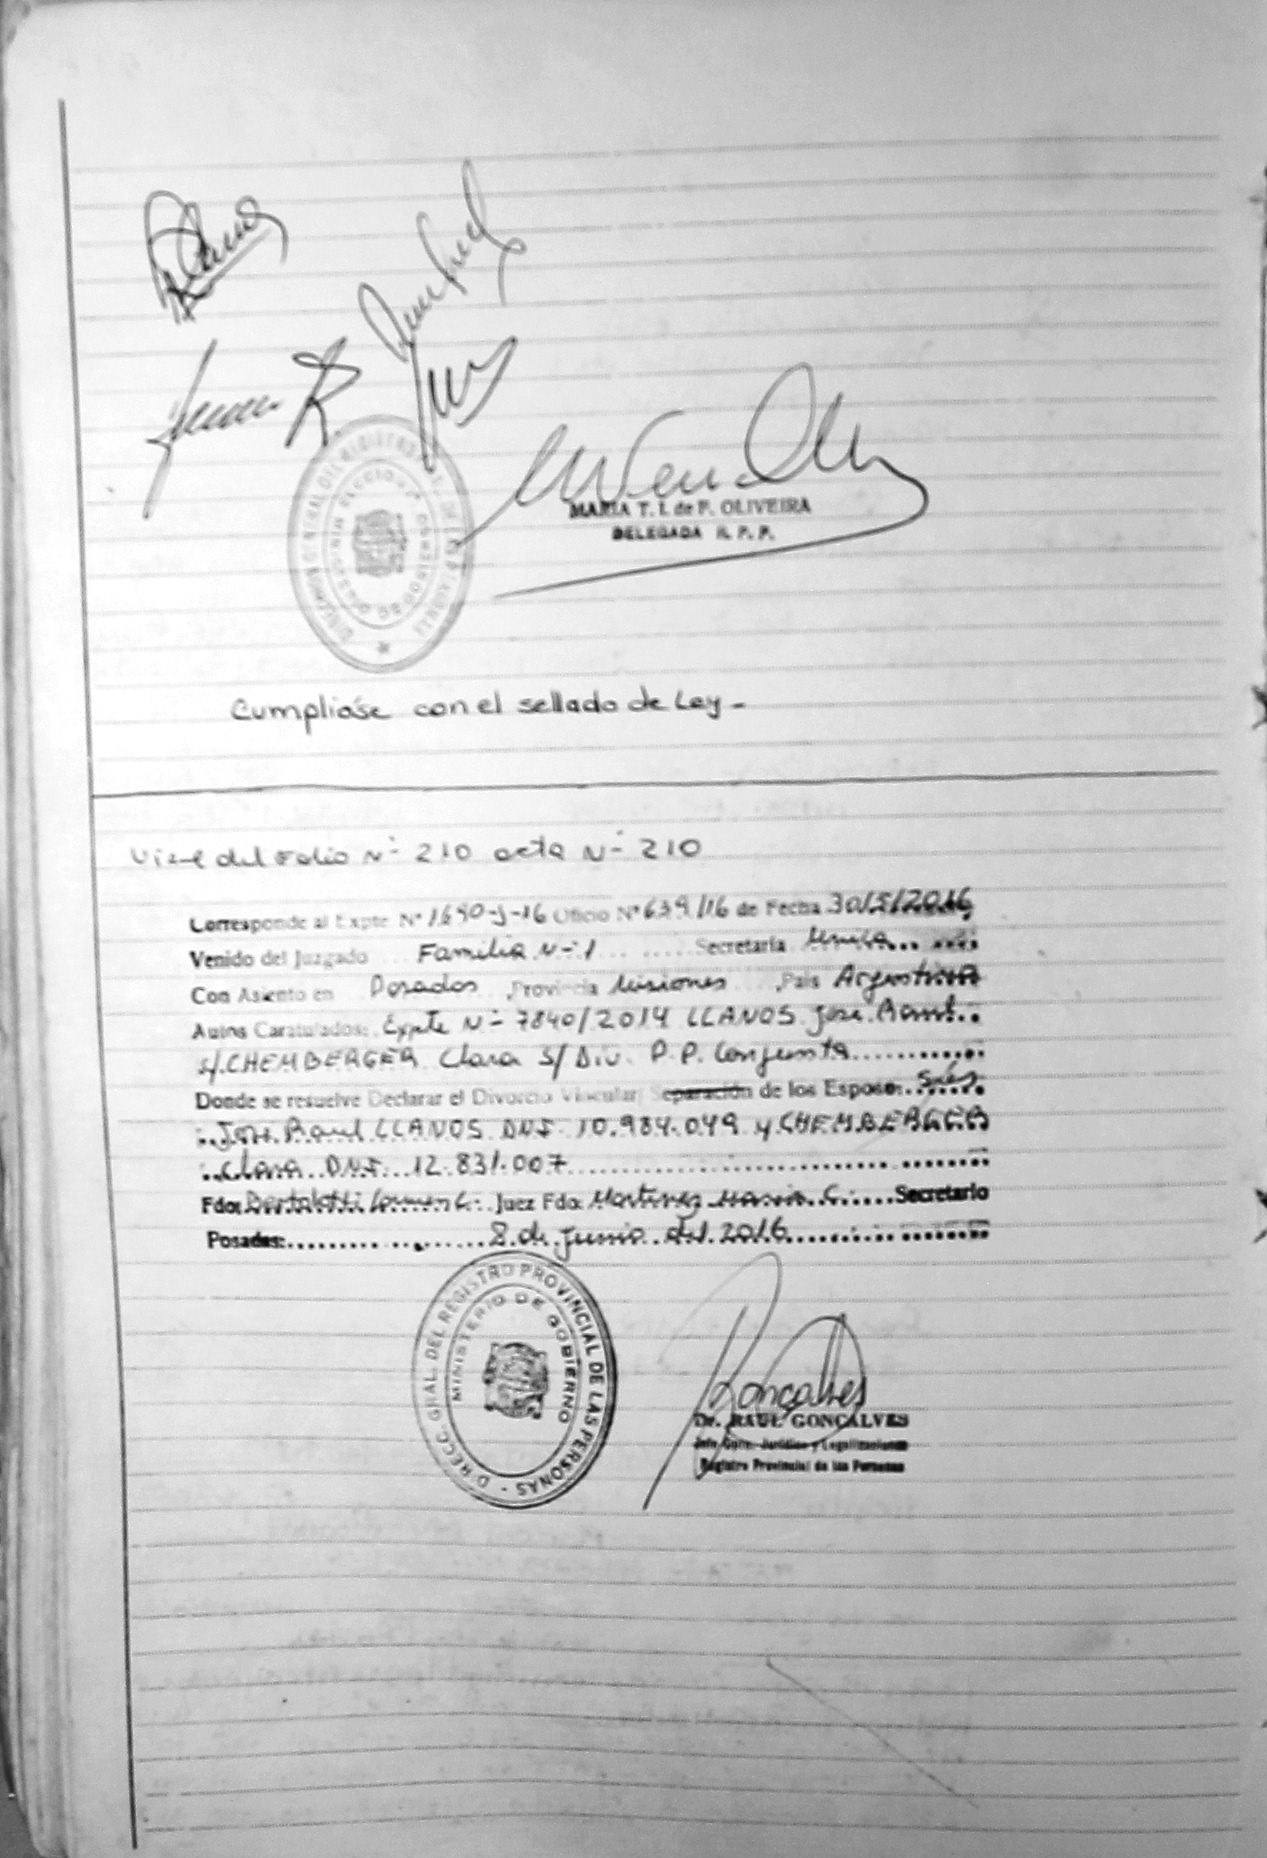 MARIA T. I. de P. OLIVEIRA
DELEGADA R. P. P.
DIRECCION GENERAL DEL REGISTRO DE LAS PERSONAS
MINISTERIO DE GOBIERNO
Cumpliase con el sellado de Ley -
Viene del Folio Nº 210 acta Nº 210
Corresponde al Expte Nº 1690-J-16 Oficio Nº 639/16 de Fecha 30/5/2016
Venido del Juzgado Familia Nº 1 Secretaría Unica
Con Asiento en Posadas Provincia Misiones País Argentina
Autos Caratulados: Expte Nº 7840/2014 LLANOS José Raul
s/ CHEMBERGER Clara S/ Div. P.P. Conjunta
Donde se resuelve Declarar el Divorcio Vincular Separación de los Esposos Sres
José Raul LLANOS DNI 10.984.049 y CHEMBERGER
Clara DNI 12.831.007
Fdo: Bertolotti Carmen C. Juez Fdo: Martinez Maria C. Secretario
Posadas: 8 de junio del 2016
D RECC. GRAL. DEL REGISTRO PROVINCIAL DE LAS PERSONAS -
MINISTERIO DE GOBIERNO
Goncalves
Dr. RAUL GONCALVES
Jurídico y Legalizaciones
Registro Provincial de las Personas